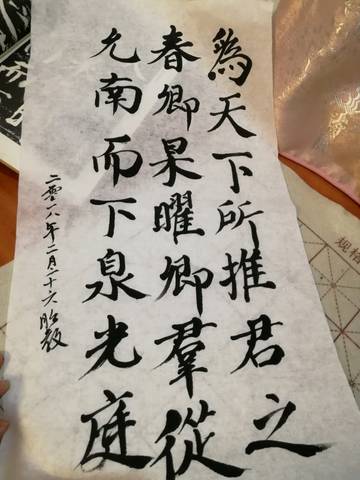 為天下所推君之
春卿杲曜卿羣從
允南而下泉光庭
二零一八年二月二十六